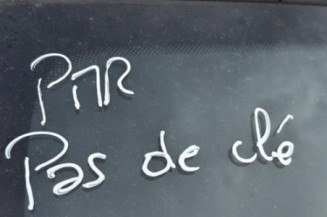 PMR
Pas de clé